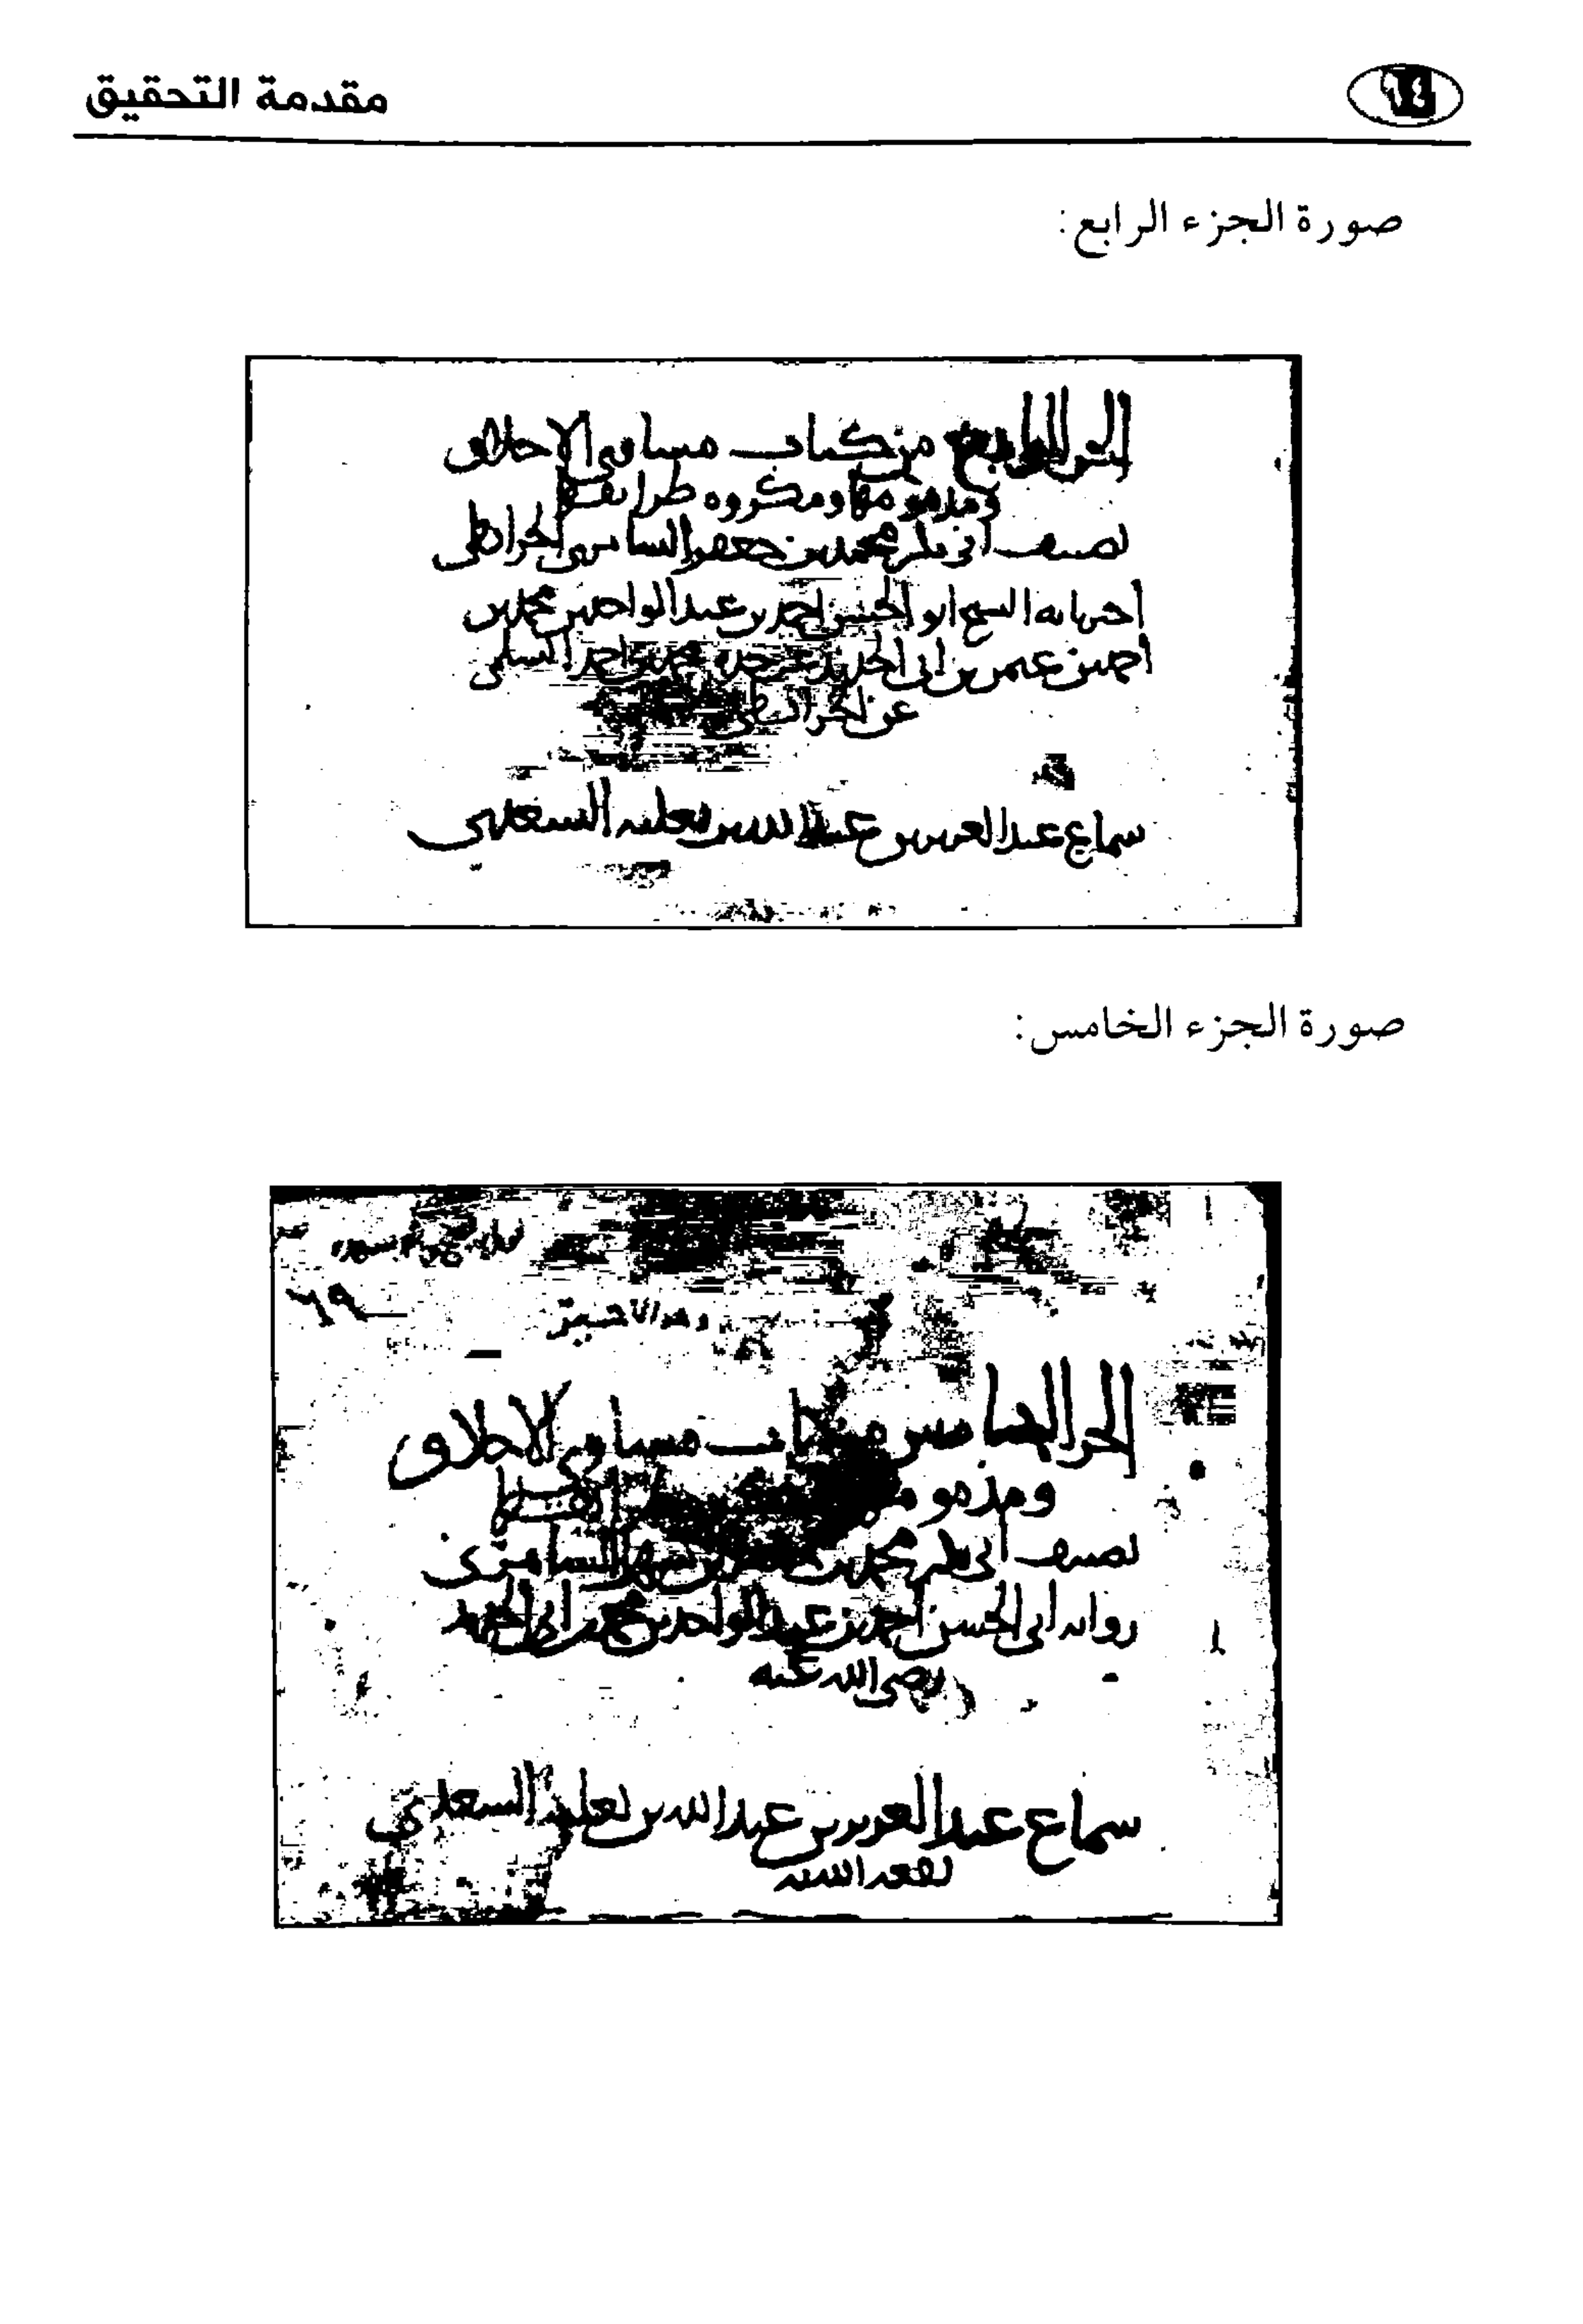 مقدمة التحقيق
صورة الجزء الرابع:
الجزء الرابع من كتاب مساوى الاخلاق
ومذمومها ومكروه طرائقها
تصنيف ابى بكر محمد بن جعفر السامرى الخرائطى
اخبرنا به الشيخ ابو الحسن احمد بن عبد الواحد بن محمد بن
احمد بن عثمن بن ابى الحديد عن جده محمد بن احمد السلمى
عن الخرائطى
سماع عبد العزيز بن عبد الله بن ثعلبه السعدى
صورة الجزء الخامس:
الجزء الخامس من كتاب مساوى الاخلاق
ومذمومها
تصنيف ابى بكر محمد بن جعفر بن سهل السامرى
روايه ابى الحسن احمد بن عبد الواحد بن محمد بن ابى الحديد
رضى الله عنه
سماع عبد العزيز بن عبد الله بن ثعلبه السعدى
نفعه الله به